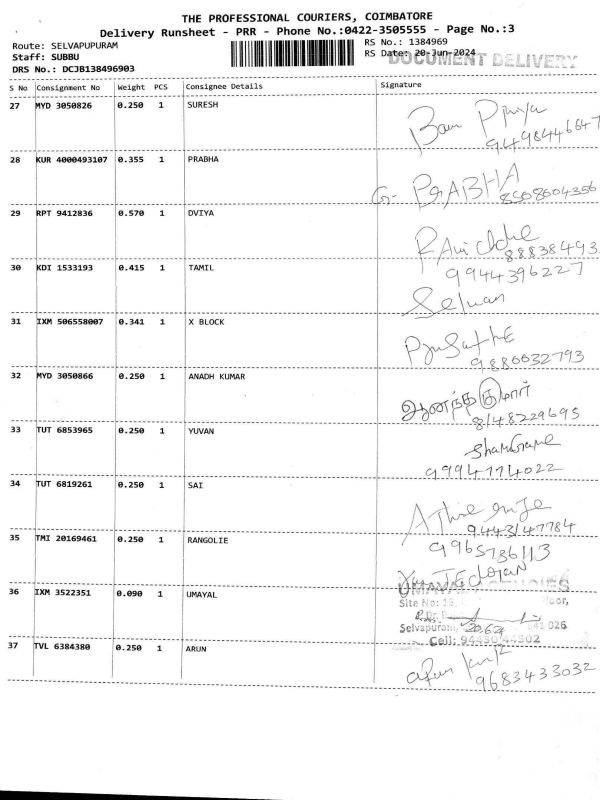 THE PROFESSIONAL COURIERS, COIMBATORE
Delivery Runsheet - PRR - Phone No.:0422-3505555 - Page No.:3
Route: SELVAPUPURAM
Staff: SUBBU
DRS No.: DCJB138496903
RS No.: 1384969
RS Date: 20-Jun-2024
DOCUMENT DELIVERY
S No Consignment No Weight PCS Consignee Details Signature
27 MYD 3050826 0.250 1 SURESH
Priya
28 KUR 4000493107 0.355 1 PRABHA
G. PRABHA
8508604356
29 RPT 9412836 0.570 1 DVIYA
88838493
30 KDI 1533193 0.415 1 TAMIL
9944396227
Selvan
31 IXM 506558007 0.341 1 X BLOCK
9880032793
32 MYD 3050866 0.250 1 ANADH KUMAR
ஆனந்த குமார்
8148229695
33 TUT 6853965 0.250 1 YUVAN
9994774022
34 TUT 6819261 0.250 1 SAI
9443147784
35 TMI 20169461 0.250 1 RANGOLIE
9965786113
36 IXM 3522351 0.090 1 UMAYAL
UMAYAL AGENCIES
Site No: 13, loor,
Selvapuram, 641 026
Cell: 94430 44502
37 TVL 6384380 0.250 1 ARUN
Arun
9683433032